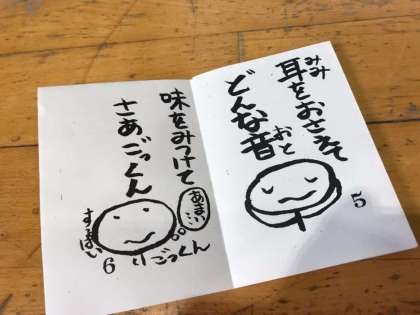 みみ
耳をおさえて
どんな音
おと
5
味をみつけて
さあごっくん
あまい
すっぱい
ごっくん
6